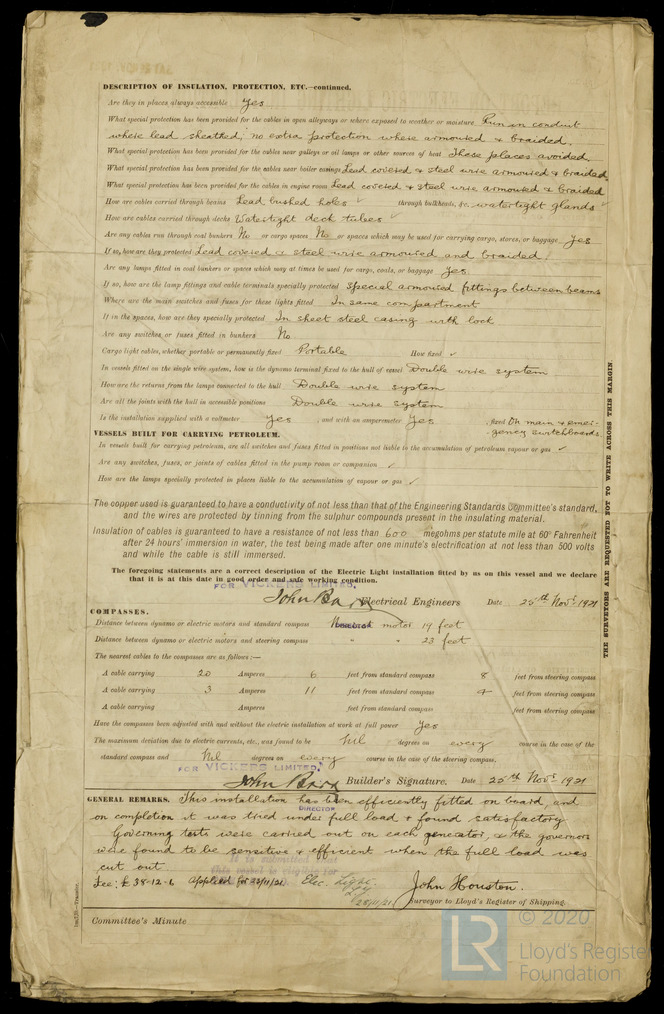 DESCRIPTION OF INSULATION, PROTECTION, ETC.—continued.
Are they in places always accessible Yes
What special protection has been provided for the cables in open alleyways or where exposed to weather or moisture Run in conduit
where lead sheathed; no extra protection where armoured & braided.
What special protection has been provided for the cables near galleys or oil lamps or other sources of heat These places avoided
What special protection has been provided for the cables near boiler casings Lead covered & steel wire armoured & braided
What special protection has been provided for the cables in engine room Lead covered & steel wire armoured & braided
How are cables carried through beams Lead bushed holes ✓ through bulkheads, &c. watertight glands ✓
How are cables carried through decks Watertight deck tubes ✓
Are any cables run through coal bunkers No or cargo spaces No or spaces which may be used for carrying cargo, stores, or baggage Yes
If so, how are they protected Lead covered & steel wire armoured and braided
Are any lamps fitted in coal bunkers or spaces which may at times be used for cargo, coals, or baggage Yes
If so, how are the lamp fittings and cable terminals specially protected Special armoured fittings between beams
Where are the main switches and fuses for these lights fitted In same compartment
If in the spaces, how are they specially protected In sheet steel casing with lock
Are any switches or fuses fitted in bunkers No
Cargo light cables, whether portable or permanently fixed Portable How fixed ✓
In vessels fitted on the single wire system, how is the dynamo terminal fixed to the hull of vessel Double wire system
How are the returns from the lamps connected to the hull Double wire system
Are all the joints with the hull in accessible positions Double wire system
Is the installation supplied with a voltmeter Yes , and with an amperemeter Yes , fixed On main & emer-
gency switchboards
VESSELS BUILT FOR CARRYING PETROLEUM.
In vessels built for carrying petroleum, are all switches and fuses fitted in positions not liable to the accumulation of petroleum vapour or gas ✓
Are any switches, fuses, or joints of cables fitted in the pump room or companion ✓
How are the lamps specially protected in places liable to the accumulation of vapour or gas ✓
The copper used is guaranteed to have a conductivity of not less than that of the Engineering Standards Committee's standard,
and the wires are protected by tinning from the sulphur compounds present in the insulating material.
Insulation of cables is guaranteed to have a resistance of not less than 600 megohms per statute mile at 60° Fahrenheit
after 24 hours' immersion in water, the test being made after one minute's electrification at not less than 500 volts
and while the cable is still immersed.
The foregoing statements are a correct description of the Electric Light installation fitted by us on this vessel and we declare
that it is at this date in good order and safe working condition.
FOR VICKERS LIMITED.
John Barr Electrical Engineers Date 25th Novr 1921
COMPASSES.
DIRECTOR
Distance between dynamo or electric motors and standard compass motor 14 feet
Distance between dynamo or electric motors and steering compass " " 23 feet
The nearest cables to the compasses are as follows:—
A cable carrying 20 Amperes 6 feet from standard compass 8 feet from steering compass
A cable carrying 3 Amperes 11 feet from standard compass 4 feet from steering compass
A cable carrying Amperes feet from standard compass feet from steering compass
Have the compasses been adjusted with and without the electric installation at work at full power Yes
The maximum deviation due to electric currents, etc., was found to be Nil degrees on every course in the case of the
standard compass and Nil degrees on every course in the case of the steering compass.
FOR VICKERS LIMITED.
John Barr Builder's Signature. Date 25th Novr 1921
DIRECTOR
GENERAL REMARKS. This installation has been efficiently fitted on board, and
on completion it was tried under full load & found satisfactory
Governing tests were carried out on each generator, & the governors
were found to be sensitive & efficient when the full load was
cut out
It is submitted that
this vessel is eligible for
Fee: £38-12-6 Applied for 23/11/21 Elec. Light
28/11/21
John Houston.
Surveyor to Lloyd's Register of Shipping.
Committee's Minute
THE SURVEYORS ARE REQUESTED NOT TO WRITE ACROSS THIS MARGIN
LR
© 2020
Lloyd's Register
Foundation